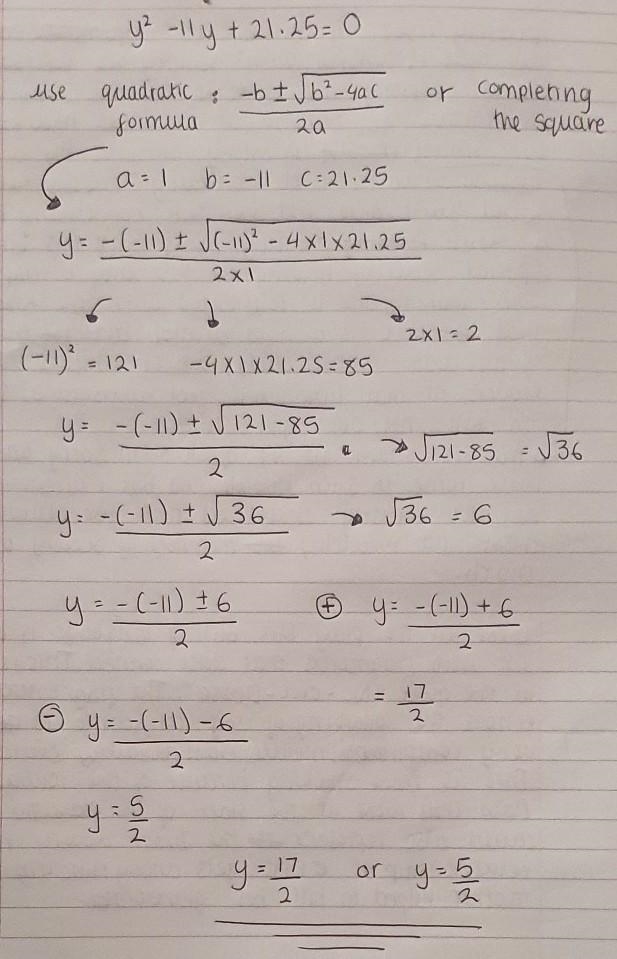 y² -11y + 21.25 = 0
use quadratic formula : (-b ± √(b² - 4ac))/2a or completing the square
a = 1 b = -11 c = 21.25
y = (-(-11) ± √((-11)² - 4×1×21.25))/(2×1)
(-11)² = 121 -4×1×21.25 = 85 2×1 = 2
y = (-(-11) ± √(121-85))/2 . → √(121-85) = √36
y = (-(-11) ± √36)/2 → √36 = 6
y = (-(-11) ± 6)/2 ⊕ y = (-(-11) + 6)/2
= 17/2
⊖ y = (-(-11) - 6)/2
y = 5/2
y = 17/2 or y = 5/2